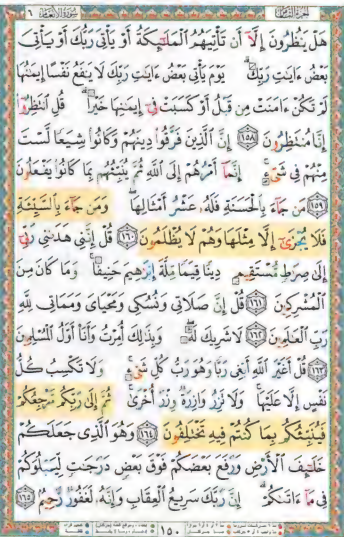 الجزء الثامن سورة الأنعام ٦
هَلْ يَنظُرُونَ إِلَّآ أَن تَأْتِيَهُمُ ٱلْمَلَـٰٓئِكَةُ أَوْ يَأْتِىَ رَبُّكَ أَوْ يَأْتِىَ
بَعْضُ ءَايَـٰتِ رَبِّكَ ۗ يَوْمَ يَأْتِى بَعْضُ ءَايَـٰتِ رَبِّكَ لَا يَنفَعُ نَفْسًا إِيمَـٰنُهَا
لَمْ تَكُنْ ءَامَنَتْ مِن قَبْلُ أَوْ كَسَبَتْ فِىٓ إِيمَـٰنِهَا خَيْرًا ۗ قُلِ ٱنتَظِرُوٓا۟
إِنَّا مُنتَظِرُونَ ١٥٨ إِنَّ ٱلَّذِينَ فَرَّقُوا۟ دِينَهُمْ وَكَانُوا۟ شِيَعًا لَّسْتَ
مِنْهُمْ فِى شَىْءٍ ۚ إِنَّمَآ أَمْرُهُمْ إِلَى ٱللَّهِ ثُمَّ يُنَبِّئُهُم بِمَا كَانُوا۟ يَفْعَلُونَ
١٥٩ مَن جَآءَ بِٱلْحَسَنَةِ فَلَهُۥ عَشْرُ أَمْثَالِهَا ۖ وَمَن جَآءَ بِٱلسَّيِّئَةِ
فَلَا يُجْزَىٰٓ إِلَّا مِثْلَهَا وَهُمْ لَا يُظْلَمُونَ ١٦٠ قُلْ إِنَّنِى هَدَىٰنِى رَبِّىٓ
إِلَىٰ صِرَٰطٍ مُّسْتَقِيمٍ دِينًا قِيَمًا مِّلَّةَ إِبْرَٰهِيمَ حَنِيفًا ۚ وَمَا كَانَ مِنَ
ٱلْمُشْرِكِينَ ١٦١ قُلْ إِنَّ صَلَاتِى وَنُسُكِى وَمَحْيَاىَ وَمَمَاتِى لِلَّهِ
رَبِّ ٱلْعَـٰلَمِينَ ١٦٢ لَا شَرِيكَ لَهُۥ ۖ وَبِذَٰلِكَ أُمِرْتُ وَأَنَا۠ أَوَّلُ ٱلْمُسْلِمِينَ
١٦٣ قُلْ أَغَيْرَ ٱللَّهِ أَبْغِى رَبًّا وَهُوَ رَبُّ كُلِّ شَىْءٍ ۚ وَلَا تَكْسِبُ كُلُّ
نَفْسٍ إِلَّا عَلَيْهَا ۚ وَلَا تَزِرُ وَازِرَةٌ وِزْرَ أُخْرَىٰ ۚ ثُمَّ إِلَىٰ رَبِّكُم مَّرْجِعُكُمْ
فَيُنَبِّئُكُم بِمَا كُنتُمْ فِيهِ تَخْتَلِفُونَ ١٦٤ وَهُوَ ٱلَّذِى جَعَلَكُمْ
خَلَـٰٓئِفَ ٱلْأَرْضِ وَرَفَعَ بَعْضَكُمْ فَوْقَ بَعْضٍ دَرَجَـٰتٍ لِّيَبْلُوَكُمْ
فِى مَآ ءَاتَىٰكُمْ ۗ إِنَّ رَبَّكَ سَرِيعُ ٱلْعِقَابِ وَإِنَّهُۥ لَغَفُورٌ رَّحِيمٌۢ ١٦٥
١٥٠